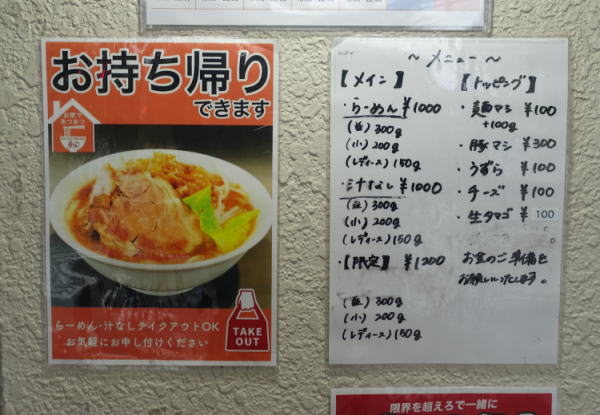 お持ち帰り
できます
お家で
あつあつ
らーめん・汁なしテイクアウトOK
お気軽にお申し付けください
TAKE
OUT
～メニュー～
【メイン】
・らーめん ¥1000
(並) 300g
(小) 200g
(レディース) 150g
・汁なし ¥1000
(並) 300g
(小) 200g
(レディース) 150g
・【限定】 ¥1200
(並) 300g
(小) 200g
(レディース) 150g
【トッピング】
・麺マシ ¥100
+100g
・豚マシ ¥300
・うずら ¥100
・チーズ ¥100
・生タマゴ ¥100
お金のご準備を
お願いいたします。
限界を超えろで一緒に